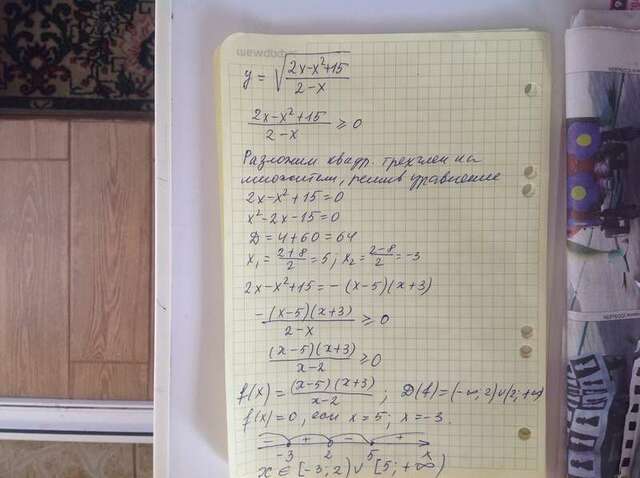 формат
y = √(2x-x²+15)/(2-x)
(2x-x²+15)/(2-x) ≥ 0
Разложим квадр. трехчлен на
множители, решив уравнение
2x-x²+15=0
x²-2x-15=0
D = 4+60=64
x₁ = (2+8)/2 = 5; x₂ = (2-8)/2 = -3
2x-x²+15 = -(x-5)(x+3)
-(x-5)(x+3)/(2-x) ≥ 0
(x-5)(x+3)/(x-2) ≥ 0
f(x) = (x-5)(x+3)/(x-2); D(f)=(-∞;2)∪(2;+∞)
f(x)=0, если x=5; x=-3.
- + - +
-3 2 5 x
x ∈ [-3; 2) ∪ [5; +∞)